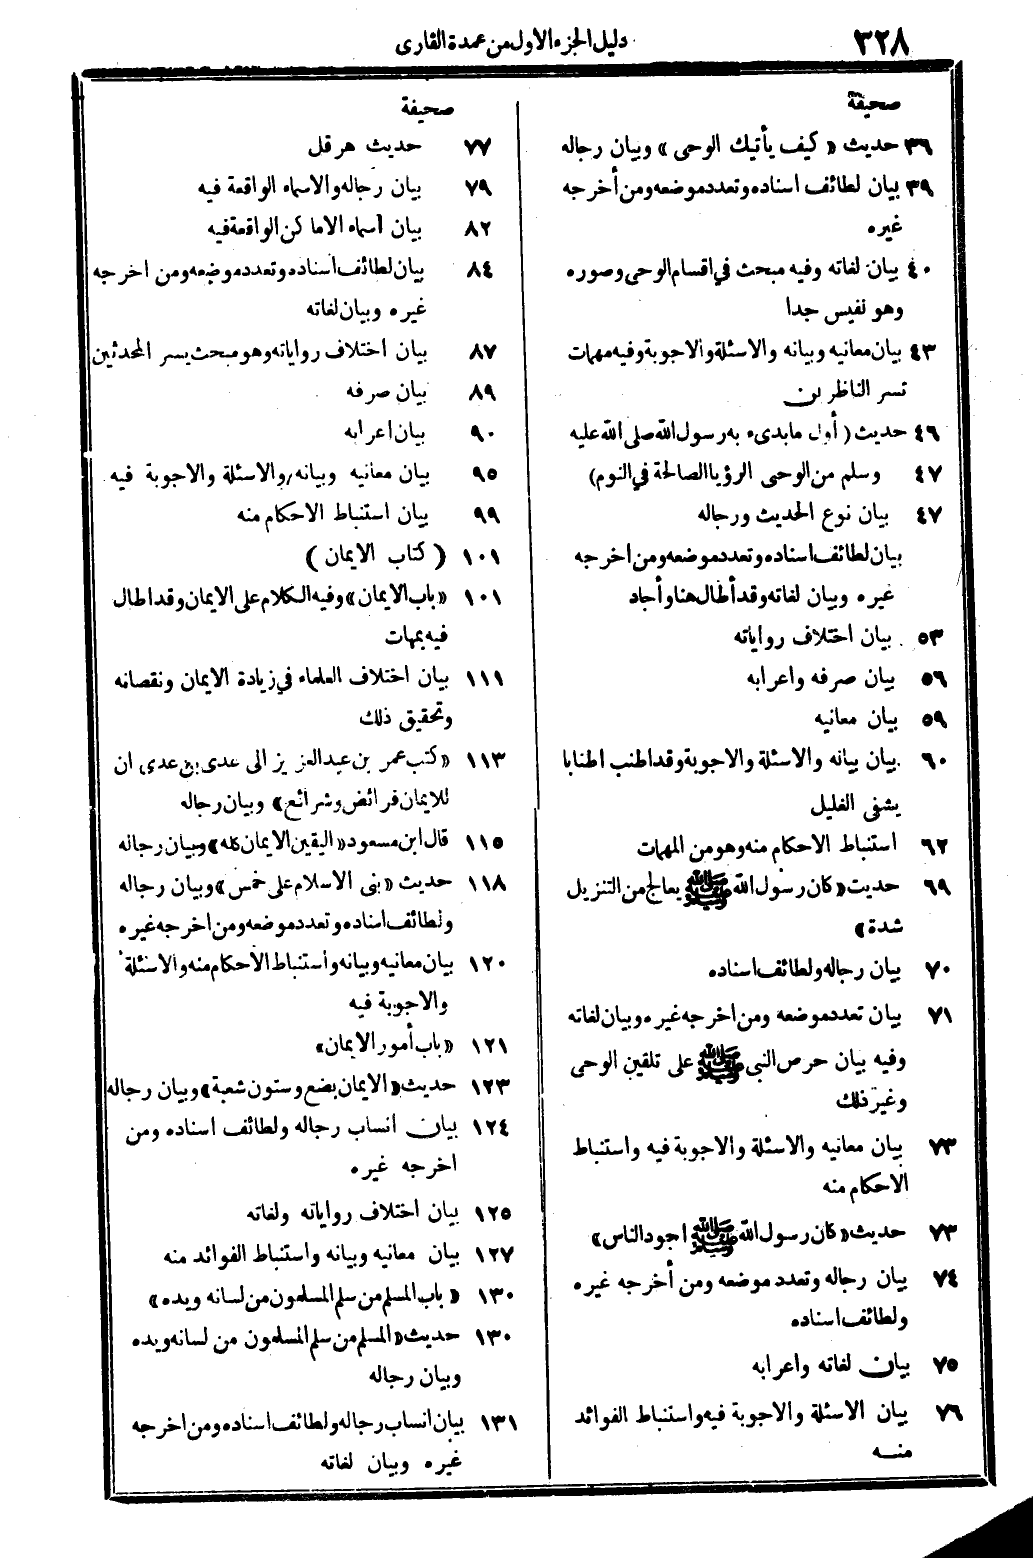 ٣٢٨
دليل الجزء الاول من عمدة القارى
صحيفة
٣٦ حديث « كيف يأتيك الوحى » وبيان رجاله
٣٩ بيان لطائف اسناده وتعدد موضعه ومن أخرجه
غيره
٤٠ بيان لغاته وفيه مبحث في اقسام الوحى وصوره
وهو نفيس جدا
٤٣ بيان معانيه وبيانه والاسئلة والاجوبة وفيه مهمات
تسر الناظرين
٤٦ حديث ( أول مابدىء به رسول الله صلى الله عليه
٤٧ وسلم من الوحى الرؤيا الصالحة في النوم )
٤٧ بيان نوع الحديث ورجاله
بيان لطائف اسناده وتعدد موضعه ومن اخرجه
غيره وبيان لغاته وقد أطال هنا وأجاد
٥٣ بيان اختلاف رواياته
٥٦ بيان صرفه واعرابه
٥٩ بيان معانيه
٦٠ بيان بيانه والاسئلة والاجوبة وقد اطنب اطنابا
يشفى الغليل
٦٢ استنباط الاحكام منه وهو من المهمات
٦٩ حديث « كان رسول الله ﷺ يعالج من التنزيل
شدة »
٧٠ بيان رجاله ولطائف اسناده
٧١ بيان تعدد موضعه ومن اخرجه غيره وبيان لغاته
وفيه بيان حرص النبي ﷺ على تلقين الوحى
وغير ذلك
٧٣ بيان معانيه والاسئلة والاجوبة فيه واستنباط
الاحكام منه
٧٣ حديث « كان رسول الله ﷺ اجود الناس »
٧٤ بيان رجاله وتعدد موضعه ومن أخرجه غيره
ولطائف اسناده
٧٥ بيان لغاته واعرابه
٧٦ بيان الاسئلة والاجوبة فيه واستنباط الفوائد
منه
صحيفة
٧٧ حديث هرقل
٧٩ بيان رجاله والاسماء الواقعة فيه
٨٢ بيان أسماء الاماكن الواقعة فيه
٨٤ بيان لطائف اسناده وتعدد موضعه ومن اخرجه
غيره وبيان لغاته
٨٧ بيان اختلاف رواياته وهو مبحث يسر المحدثين
٨٩ بيان صرفه
٩٠ بيان اعرابه
٩٥ بيان معانيه وبيانه والاسئلة والاجوبة فيه
٩٩ بيان استنباط الاحكام منه
١٠١ ( كتاب الايمان )
١٠١ « باب الايمان » وفيه الكلام على الايمان وقد اطال
فيه بمهات
١١١ بيان اختلاف العلماء في زيادة الايمان ونقصانه
وتحقيق ذلك
١١٣ « كتب عمر بن عبد العزيز الى عدى بن عدى ان
للايمان فرائض وشرائع » وبيان رجاله
١١٥ قال ابن مسعود « اليقين الايمان كله » وبيان رجاله
١١٨ حديث « بنى الاسلام على خمس » وبيان رجاله
ولطائف اسناده وتعدد موضعه ومن اخرجه غيره
١٢٠ بيان معانيه وبيانه واستنباط الاحكام منه والاسئلة
والاجوبة فيه
١٢١ « باب أمور الايمان »
١٢٣ حديث « الايمان بضع وستون شعبة » وبيان رجاله
١٢٤ بيان انساب رجاله ولطائف اسناده ومن
اخرجه غيره
١٢٥ بيان اختلاف رواياته ولغاته
١٢٧ بيان معانيه وبيانه واستنباط الفوائد منه
١٣٠ « باب المسلم من سلم المسلمون من لسانه ويده »
١٣٠ حديث « المسلم من سلم المسلمون من لسانه ويده
وبيان رجاله
١٣١ بيان انساب رجاله ولطائف اسناده ومن اخرجه
غيره وبيان لغاته